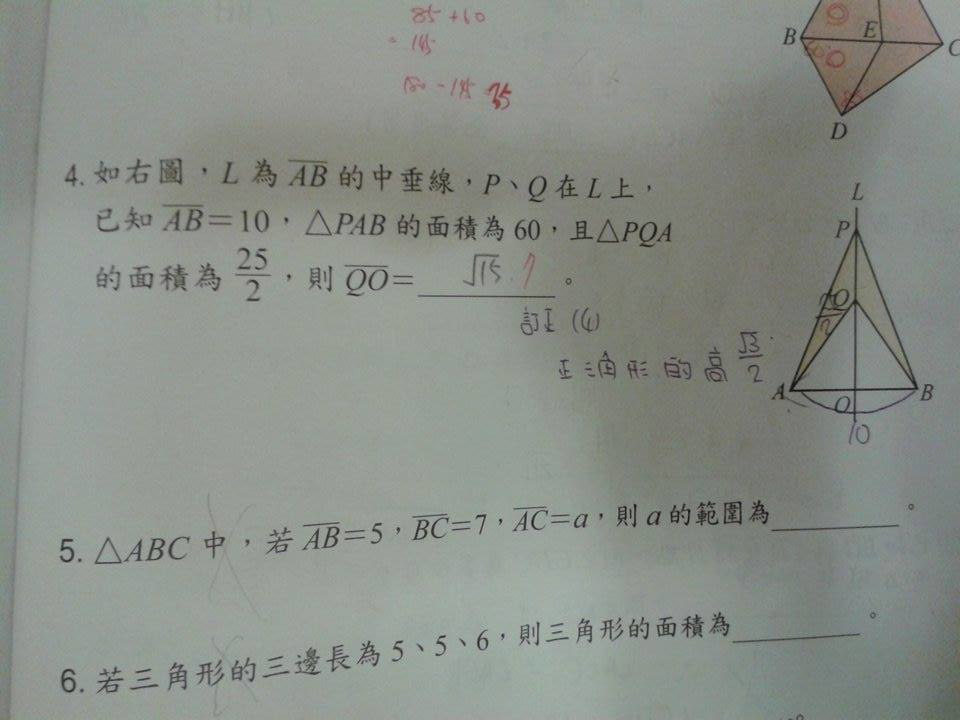 85+60
= 145
180 - 145 35
B E C
D
4. 如右圖，L 為 AB 的中垂線，P、Q 在 L 上，
已知 AB=10，△PAB 的面積為 60，且△PQA
的面積為 25/2，則 QO= √15 7 。
訂正 (4)
正三角形的高 √3/2
L
P
Q
A O B
10
5. △ABC 中，若 AB=5，BC=7，AC=a，則 a 的範圍為______。
6. 若三角形的三邊長為 5、5、6，則三角形的面積為______。